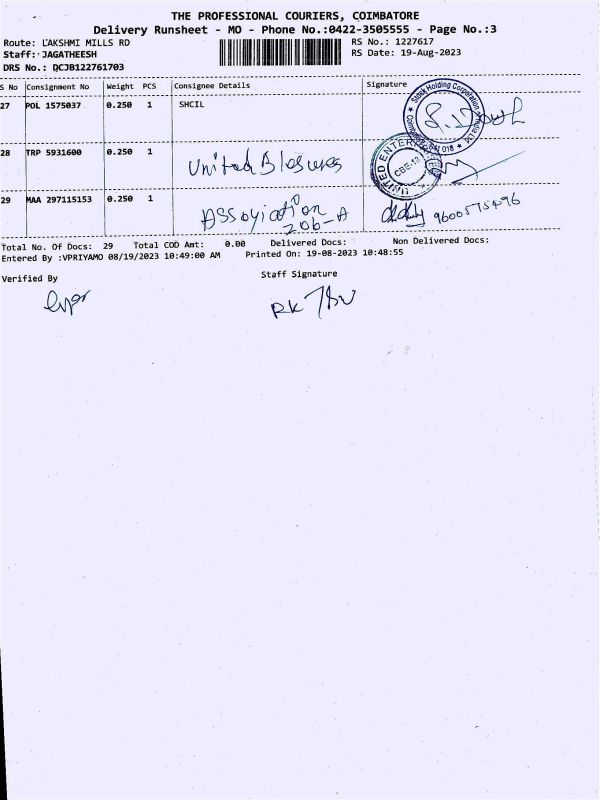 THE PROFESSIONAL COURIERS, COIMBATORE
Delivery Runsheet - MO - Phone No.:0422-3505555 - Page No.:3
Route: LAKSHMI MILLS RD RS No.: 1227617
Staff: JAGATHEESH RS Date: 19-Aug-2023
DRS No.: QCJB122761703
S No Consignment No Weight PCS Consignee Details Signature
27 POL 1575037 0.250 1 SHCIL
Stock Holding Corporation
28 TRP 5931600 0.250 1 United
UNITED ENTERPR
CBE-18
29 MAA 297115153 0.250 1 ASSoyiation 206-A 9600575496
Total No. Of Docs: 29 Total COD Amt: 0.00 Delivered Docs: Non Delivered Docs:
Entered By :VPRIYAMO 08/19/2023 10:49:00 AM Printed On: 19-08-2023 10:48:55
Verified By Staff Signature